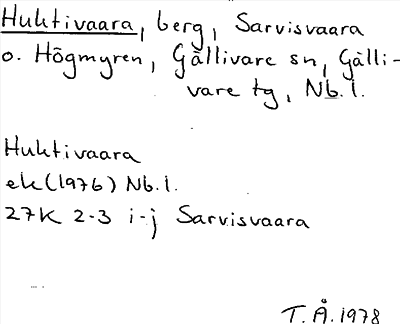 Huhtivaara, berg, Sarvisvaara
o. Högmyren, Gällivare sn, Gälli-
vare tg, Nb.l.
Huhtivaara
ek (1976) Nb.l.
27K 2-3 i-j Sarvisvaara
T.Å. 1978